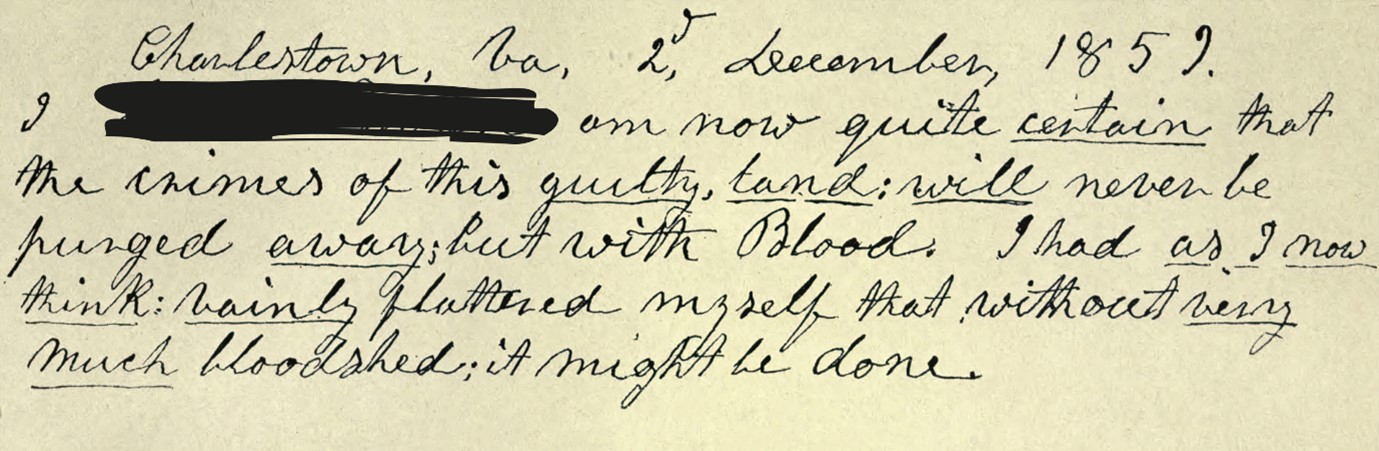 Charlestown, Va, 2d, December, 1859.
I am now quite certain that
the crimes of this guilty, land: will never be
purged away; but with Blood. I had as I now
think: vainly flattered myself that without very
much bloodshed; it might be done.